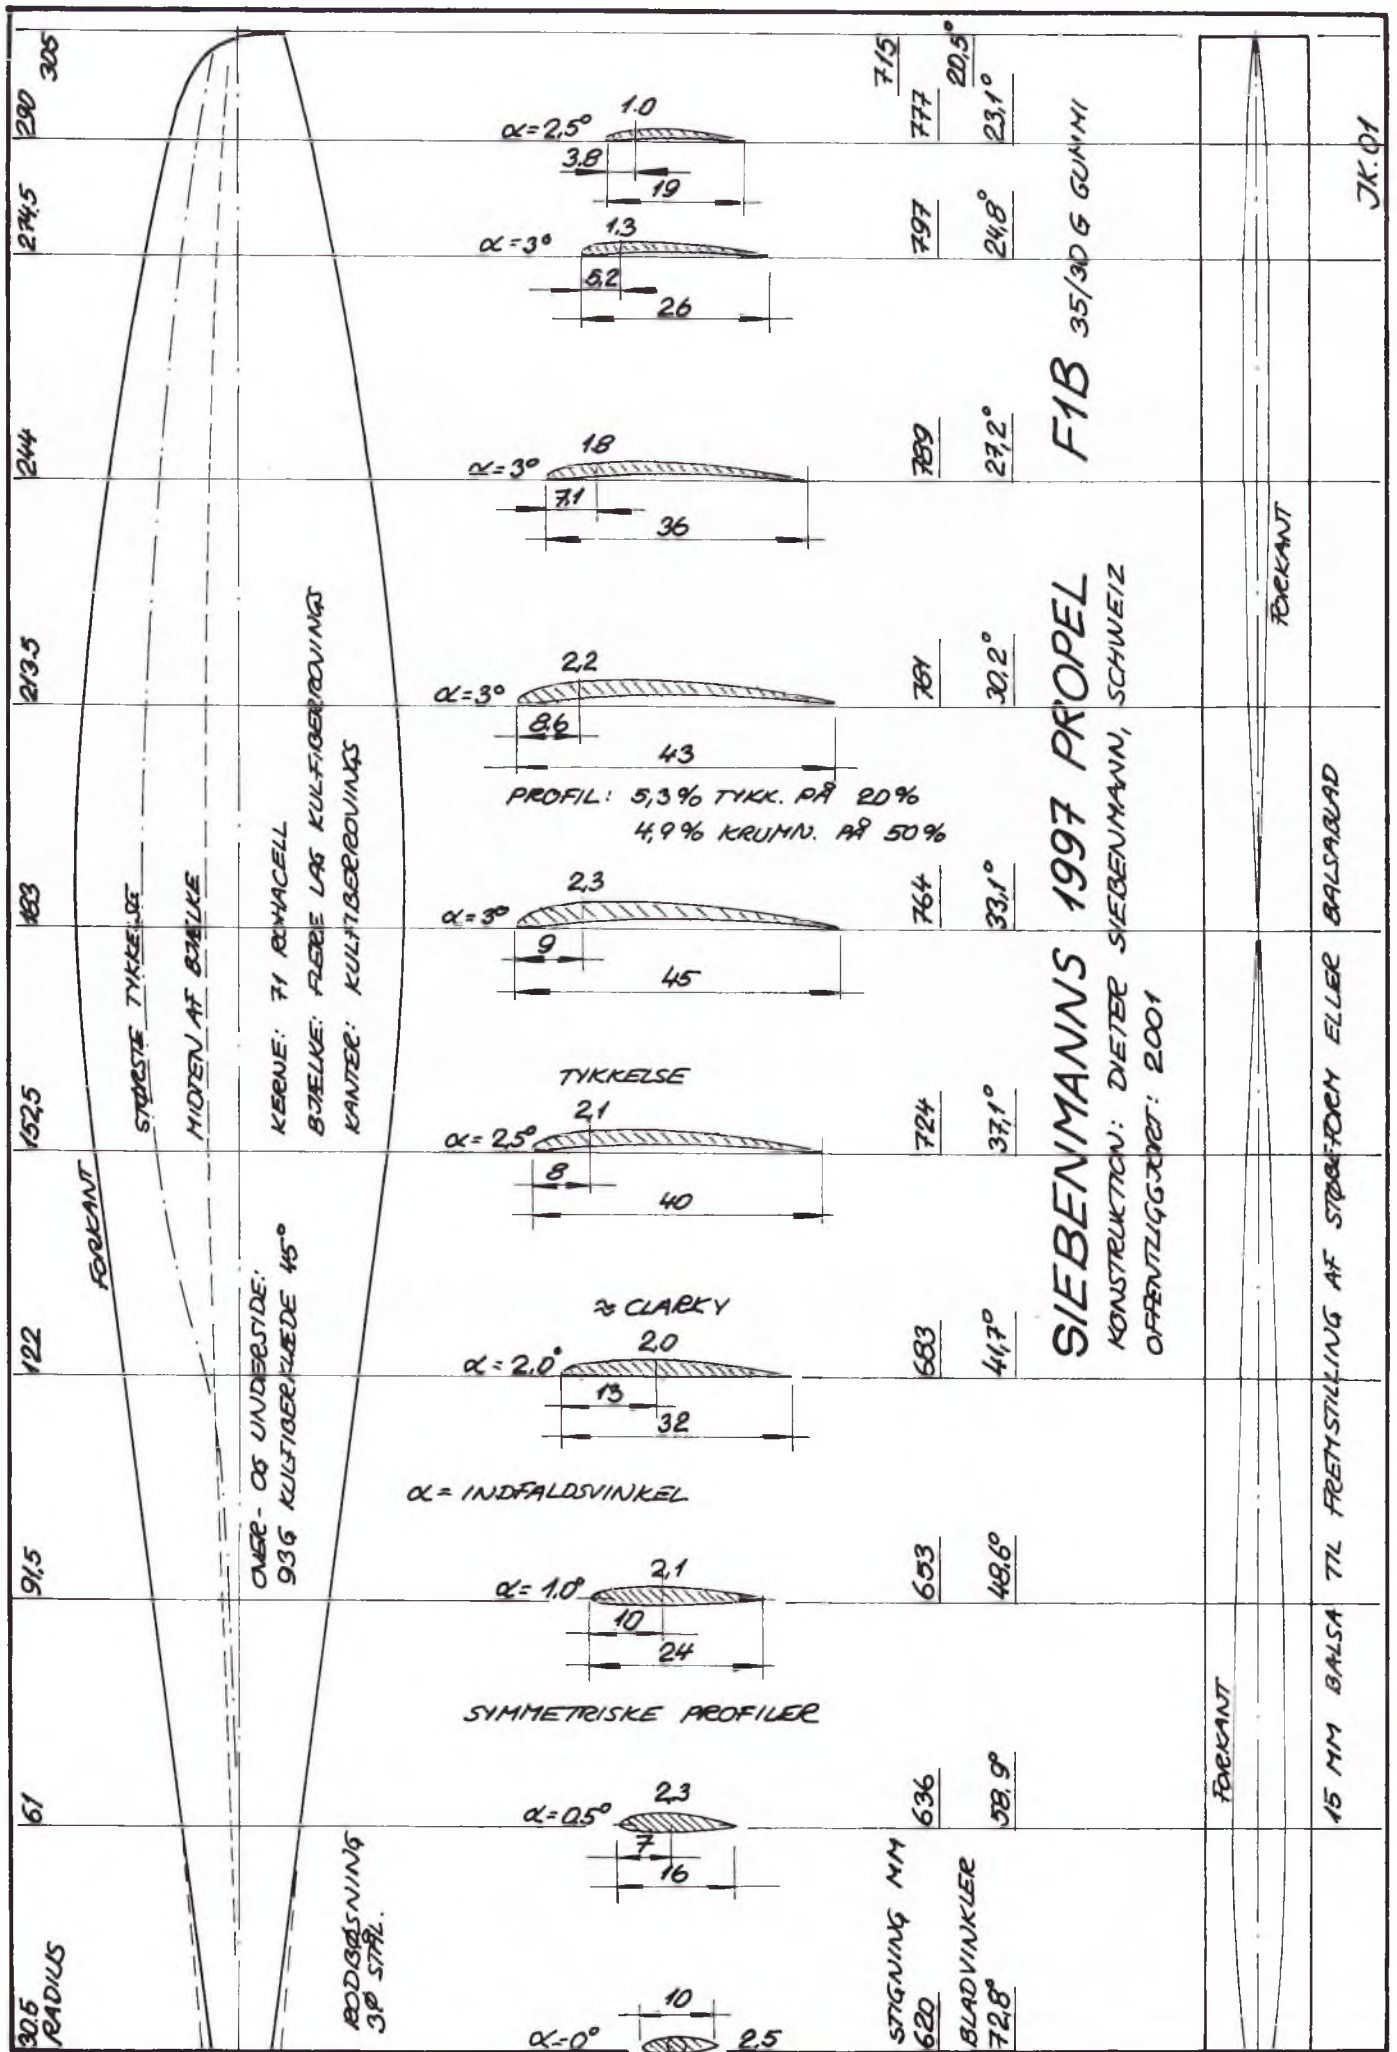 305
290
274,5
244
213.5
183
152,5
122
91,5
61
30.5
RADIUS
FORKANT
STØRSTE TYKKELSE
MIDTEN AF BJÆLKE
KERNE: 71 ROHACELL
BJÆLKE: FLERE LAG KULFIBERROVINGS
KANTER: KULFIBERROVINGS
OVER- OG UNDERSIDE:
93G KULFIBERKLÆDE 45°
RODBØSNING
3Ø STÅL.
α=2,5°
1.0
3.8
19
α=3°
1.3
5.2
26
α=3°
1.8
7.1
36
α=3°
2,2
8.6
43
PROFIL: 5,3% TYKK. PÅ 20%
4,9% KRUMN. PÅ 50%
α=3°
2,3
9
45
TYKKELSE
α=2,5°
2,1
8
40
≈ CLARKY
α=2,0°
2,0
13
32
α= INDFALDSVINKEL
α=1.0°
2,1
10
24
SYMMETRISKE PROFILER
α=0,5°
2,3
7
16
α=0°
10
2,5
STIGNING MM
620 636 653 683 724 764 781 789 797 777 715
BLADVINKLER
72,8° 58.9° 48,6° 41,7° 37,1° 33,1° 30,2° 27,2° 24,8° 23,1° 20,5°
SIEBENMANNS 1997 PROPEL F1B 35/30 G GUMMI
KONSTRUKTION: DIETER SIEBENMANN, SCHWEIZ
OFFENTLIGGJORT: 2001
FORKANT
FORKANT
15 MM BALSA TIL FREMSTILLING AF STØBEFORM ELLER BALSABLAD
JK.01